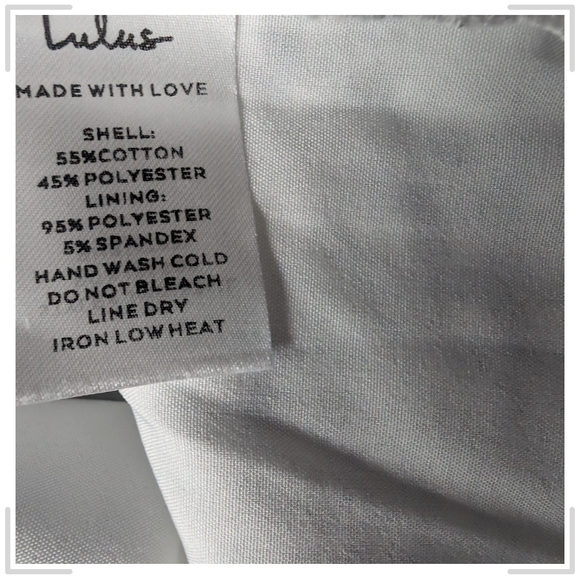 Lulus
MADE WITH LOVE
SHELL:
55%COTTON
45% POLYESTER
LINING:
95% POLYESTER
5% SPANDEX
HAND WASH COLD
DO NOT BLEACH
LINE DRY
IRON LOW HEAT